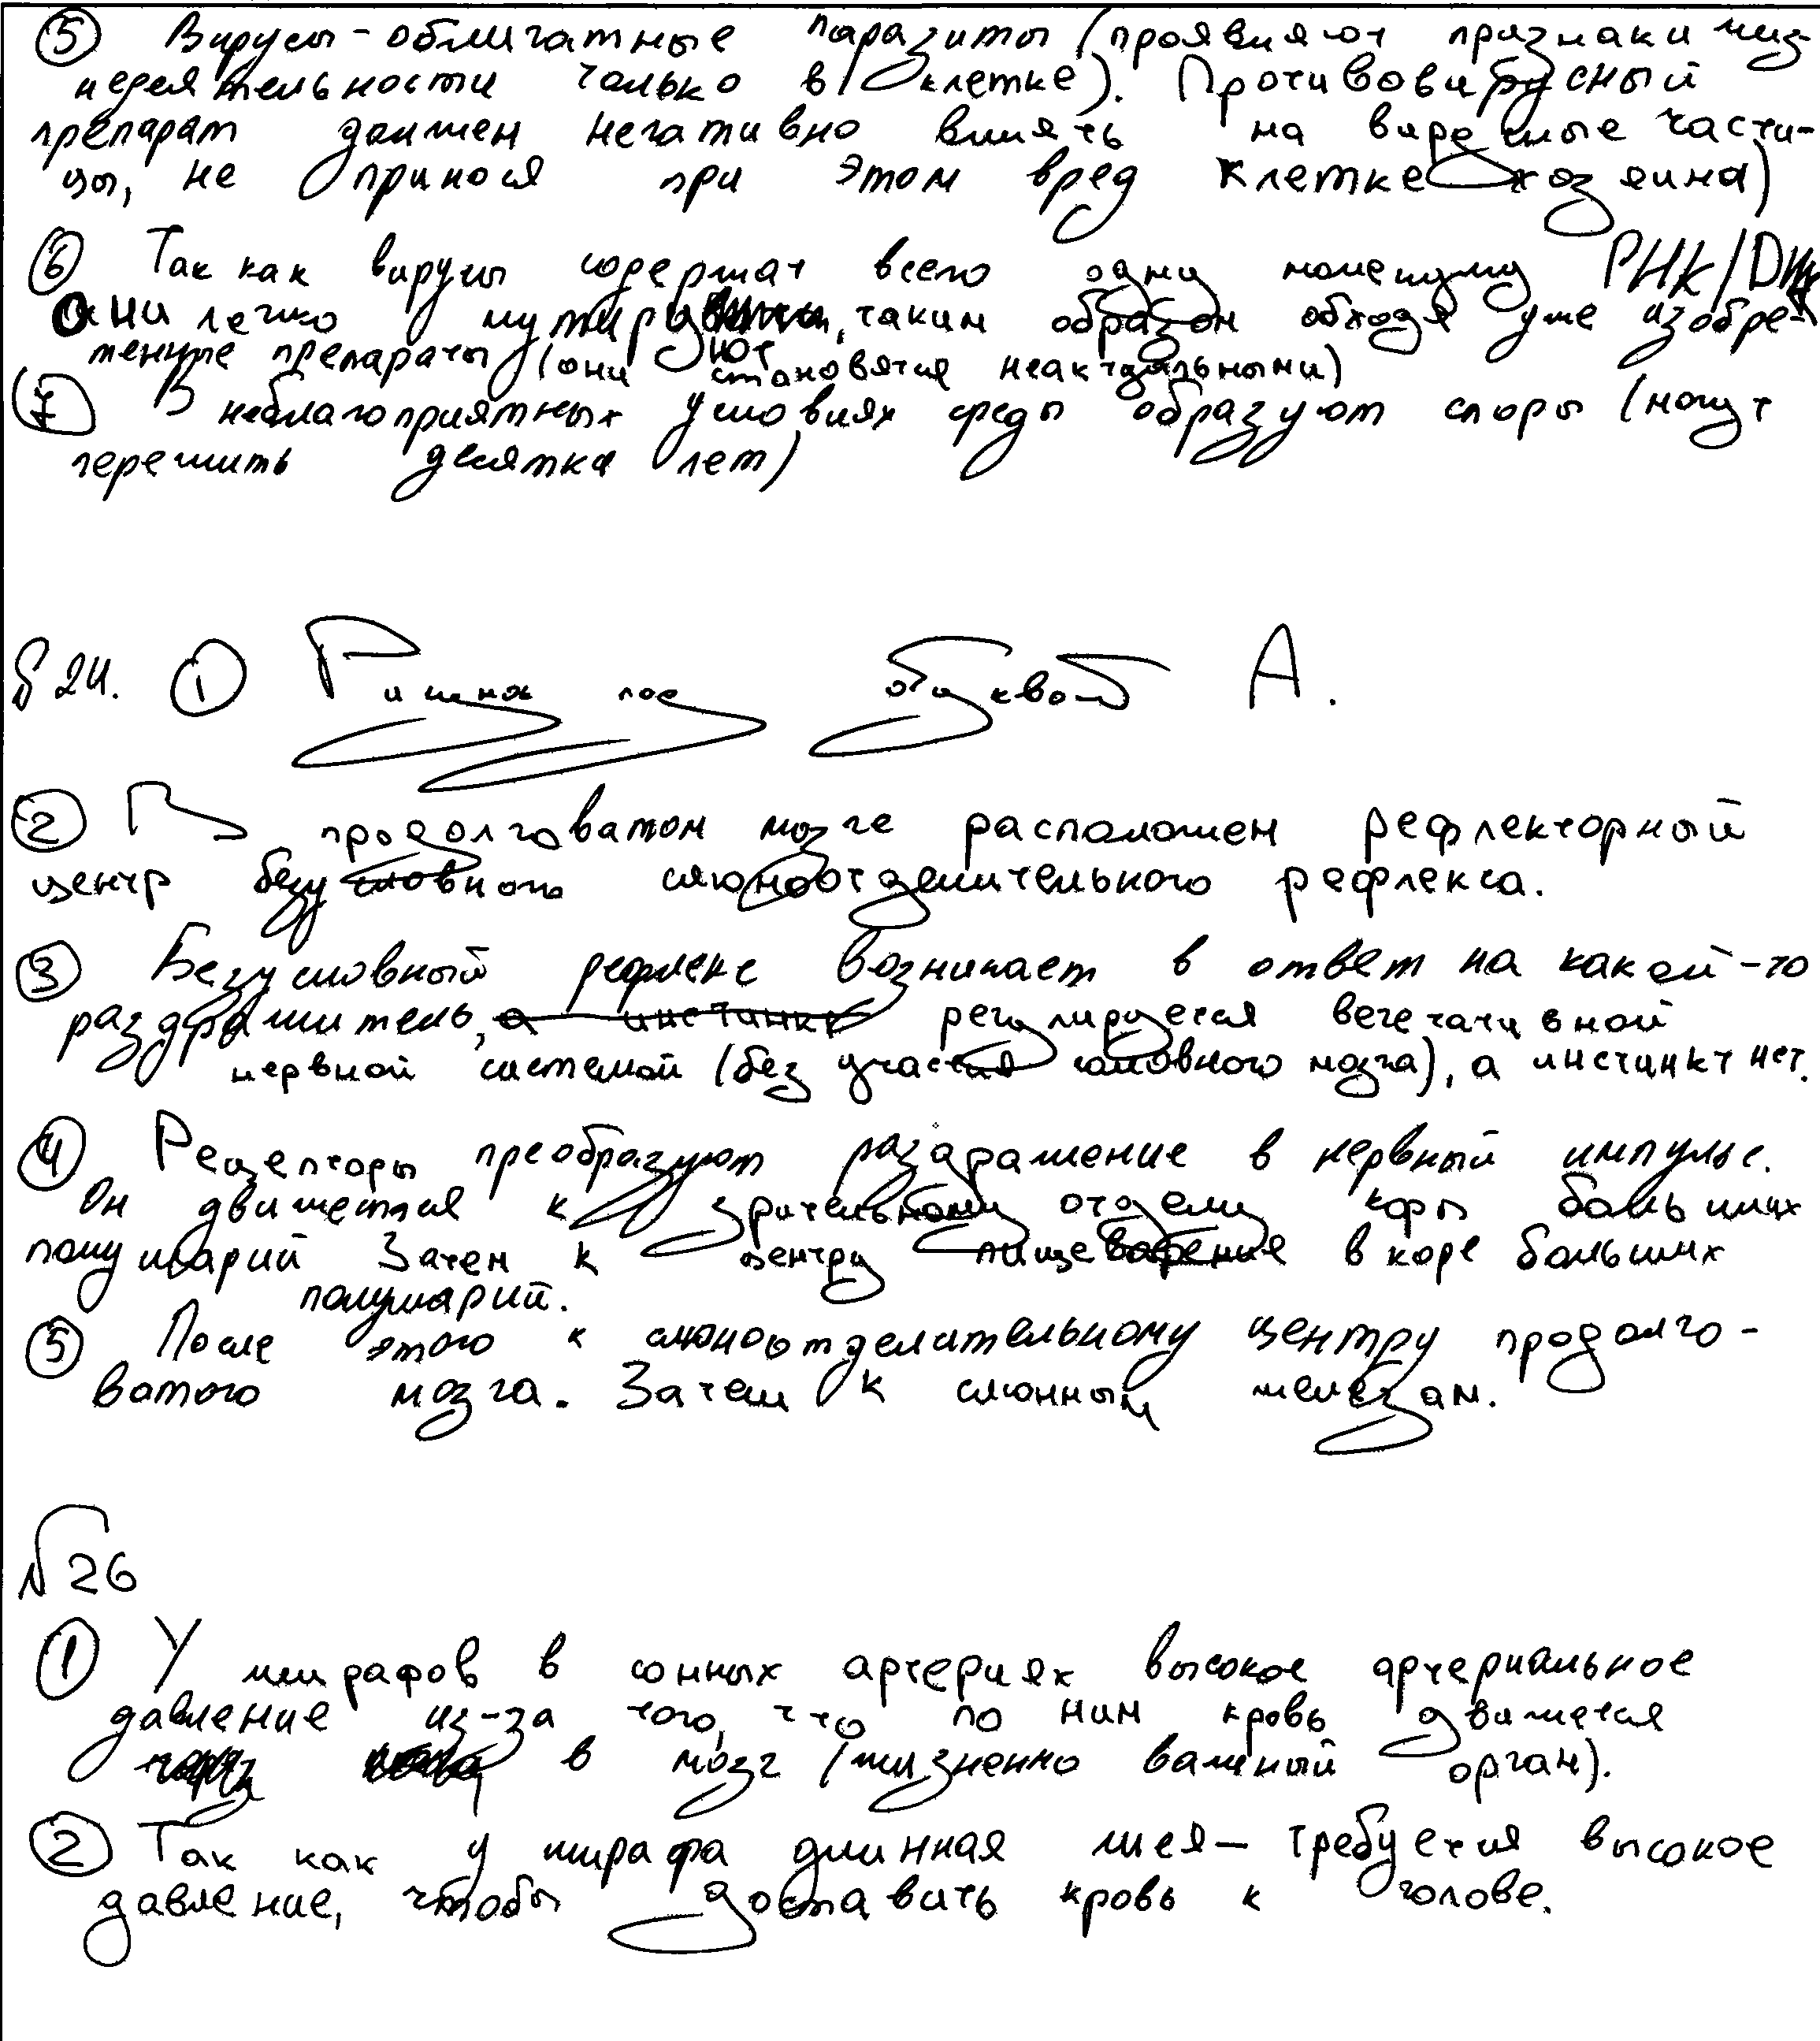 ⑤ Вирусы - облигатные паразиты (проявляют признаки жиз-
недеятельности только в клетке). Противовирусный
препарат должен негативно влиять на вирусные части-
цы, не принося при этом вред клетке хозяина)
⑥ Так как вирусы содержат всего одну молекулу РНК/ДНК
они легко мутируют, таким образом обходя уже изобре-
тенные препараты (они становятся неактуальными)
⑦ В неблагоприятных условиях среды образуют споры (могут
пережить десятка лет)
№ 24. ① Рисунок под буквой А.
② В продолговатом мозге расположен рефлекторный
центр безусловного слюноотделительного рефлекса.
③ Безусловный рефлекс возникает в ответ на какой-то
раздражитель, регулируется вегетативной
нервной системой (без участия головного мозга), а инстинкт нет.
④ Рецепторы преобразуют раздражение в нервный импульс.
Он движется к зрительному отделу коры больших
полушарий Затем к центру пищеварения в коре больших
полушарий.
⑤ После этого к слюноотделительному центру продолго-
ватого мозга. Затем к слюнным железам.
№ 26
① У жирафов в сонных артериях высокое артериальное
давление из-за того, что по ним кровь движется
в мозг (жизненно важный орган).
② Так как у жирафа длинная шея - требуется высокое
давление, чтобы доставить кровь к голове.